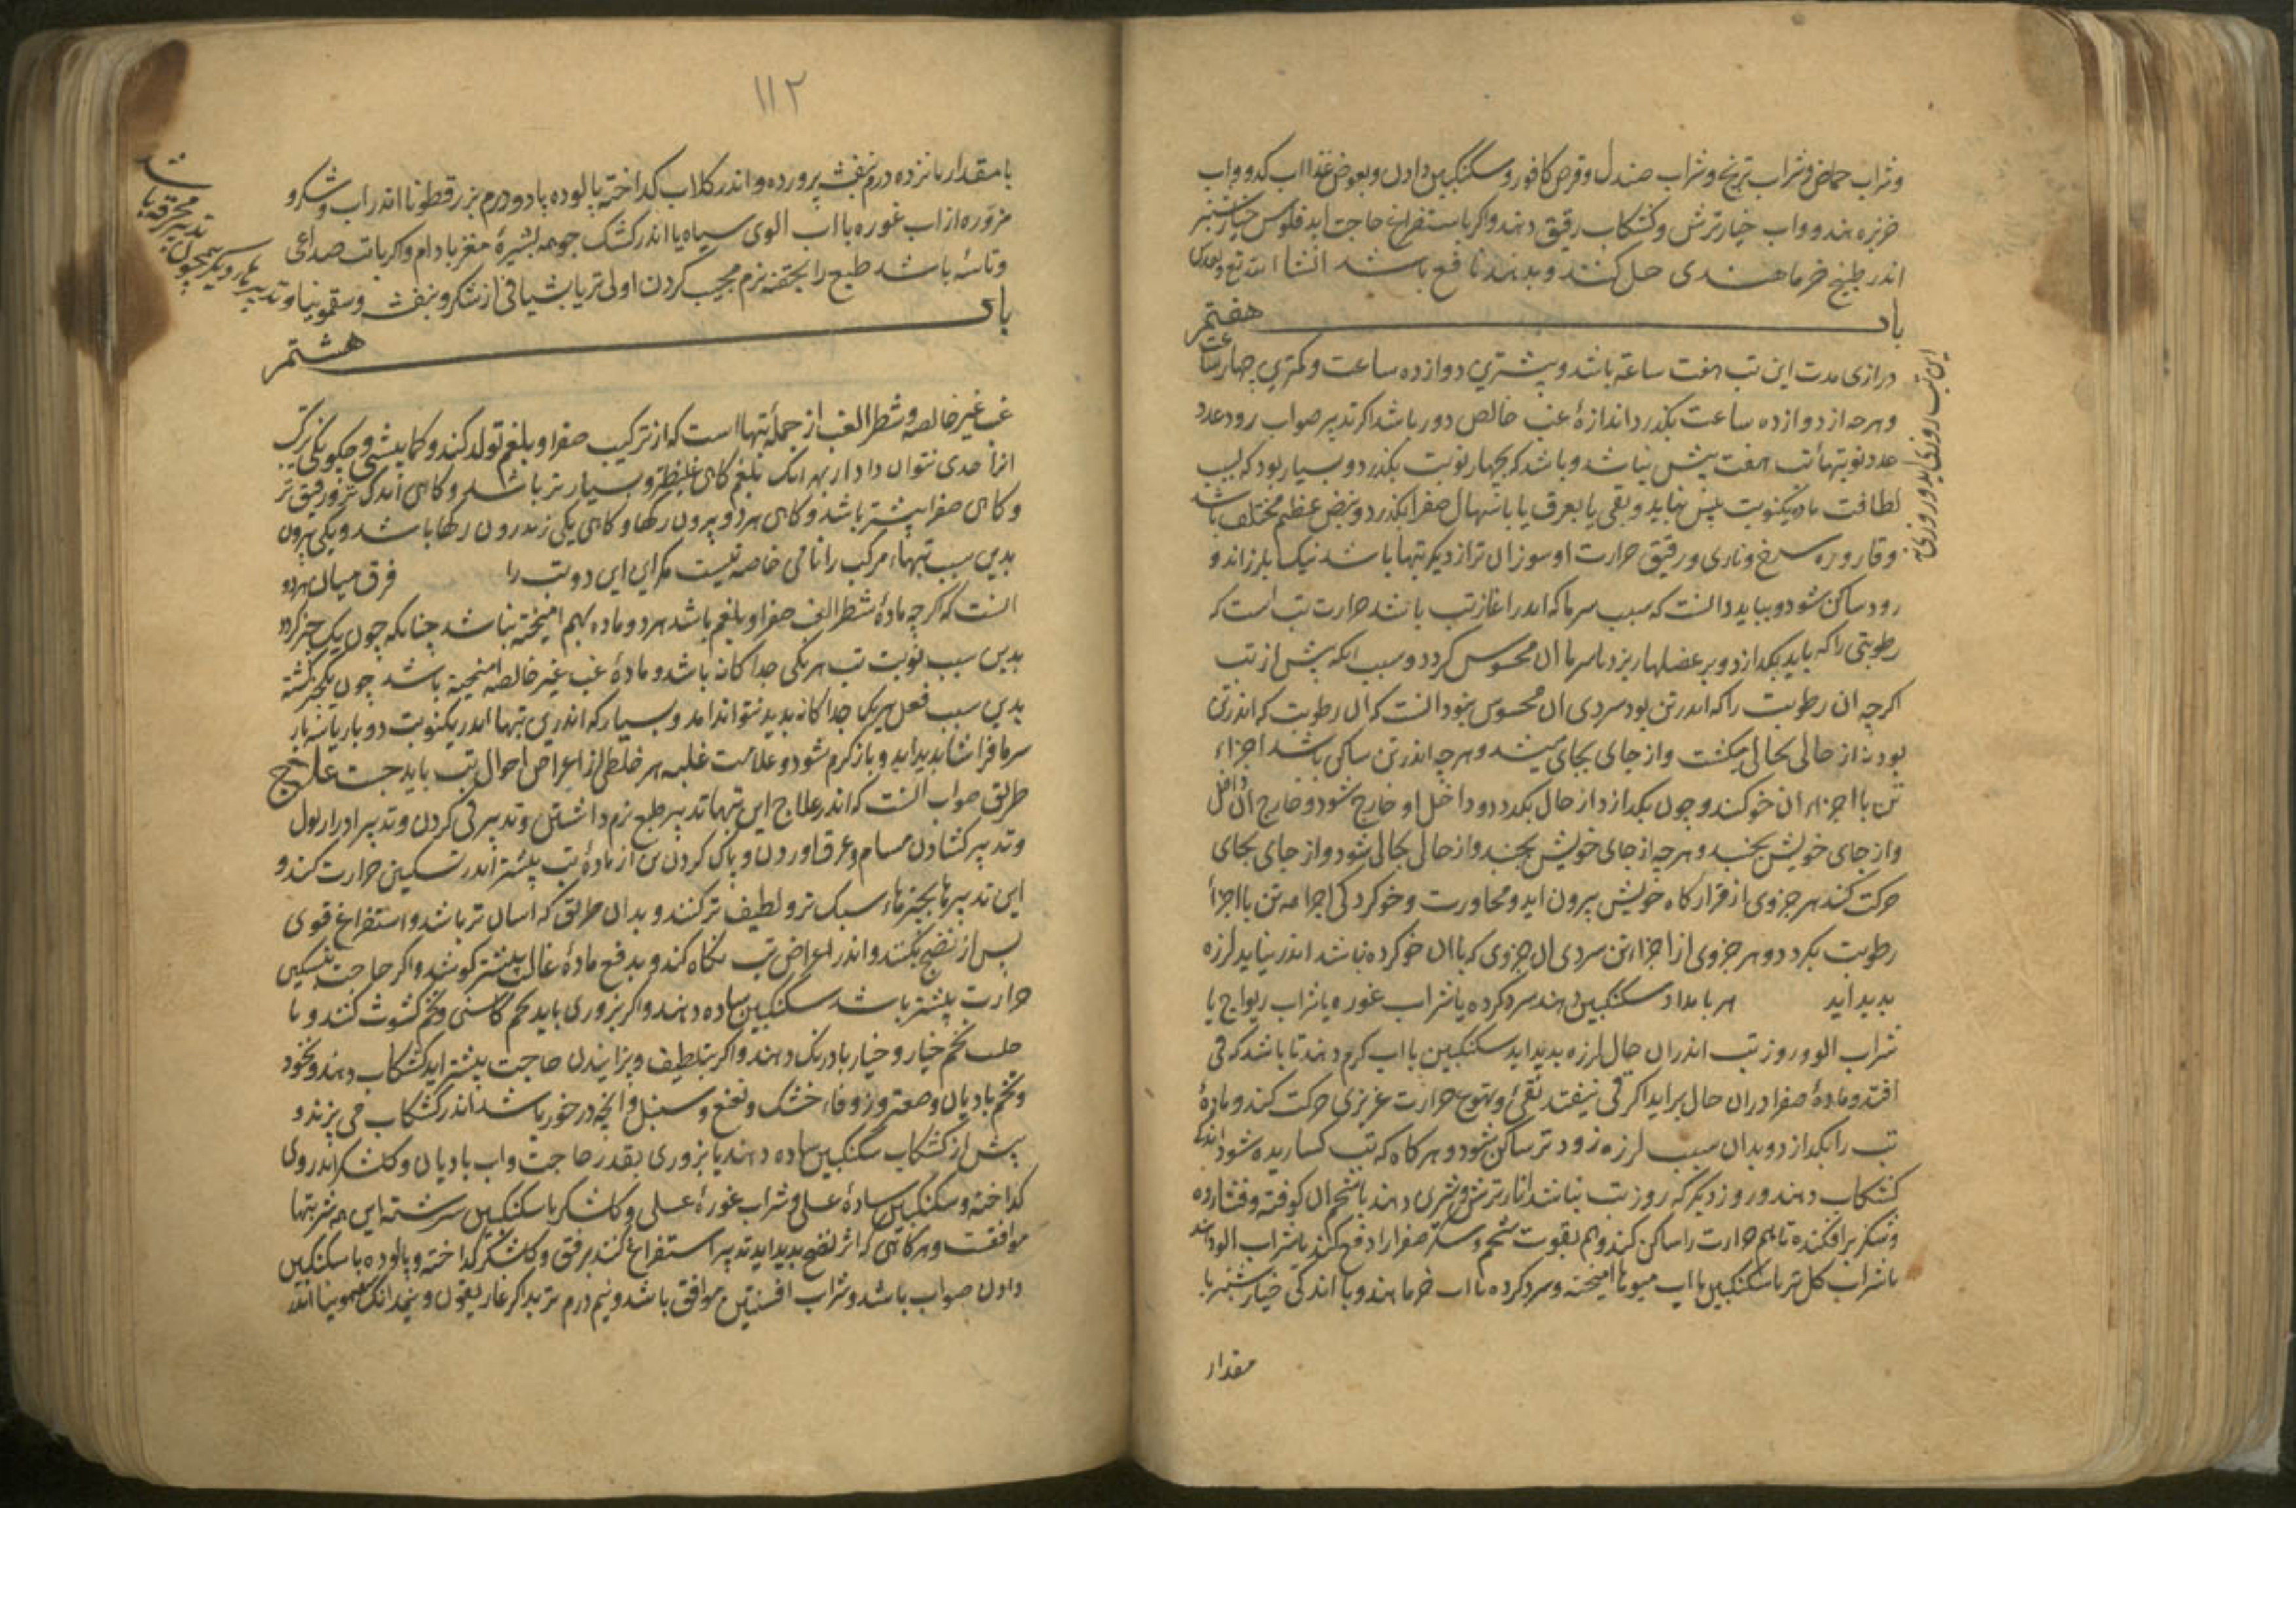 وشراب حماض وشراب ترنج وشراب صندل وقرص کافور وسکنگبین دادن وبعوض غذا اب کدو واب
خربزه هندو واب خیار ترش وکشکاب رقیق دهند واکر باستفراغ حاجت اید فلوس خیارشنبر
اندر طبیخ خرما هندی حل کنند وبدهند نافع باشد انشا الله تع
باب هفتم
درازی مدت این تب هفت ساعة باشد وبیشتری دوازده ساعت وکمتری چهار ساعت
وهرچه از دوازده ساعت بکذرد اندازهٔ غب خالص دور باشد اکر تدبیر صواب رود عدد
عدد نوبتهاء تب هفت بیش نباشد وباشد که بچهار نوبت بکذرد وبسیار بود که بسبب
لطافت ماده یکنوبت بیش نیاید وبقی یا بعرق یا باسهال صفرا بکذرد ونبض عظیم مختلف باشد
وقاروره سرخ وناری ورقیق حرارت او سوزان تر از دیکر تبها باشد نیک بلرزاند و
زود ساکن شود وبباید دانست که سبب سرما که اندر اغاز تب باشد حرارت تب است که
رطوبتی را که باید بکدازد وبر عضلها ریزد تا سرما ان محسوس کردد وسبب انکه پیش از تب
اکرچه ان رطوبت را که اندر تن بود سردی ان محسوس نبود انست که ان رطوبت که اندر تن
بود نه از حالی بحالی میکشت واز جای بجای میشد وهرچه اندر تن ساکن باشد اجزاء
تن با اجزاء ان خو کند وچون بکدازد از حال بکردد وداخل او خارج شود وخارج ان داخل
واز جای خویش بجنبد وهرچه از جای خویش بجنبد واز حالی بحالی شود واز جای بجای
حرکت کند هر جزوی از قرارکاه خویش بیرون اید ومجاورت وخو کردکی اجزا تن با اجزا
رطوبت بکردد وهر جزوی از اجزاء تن سردی ان جزوی که با ان خو کرده نباشد اندر نیابد لرزه
بدید اید هر بامداد سکنکبین دهند سرد کرده یا شراب غوره یا شراب ریواج یا
شراب الو وروز تب اندران حال لرزه بدید اید سکنکبین با اب کرم دهند تا باشد که قی
افتد ومادهٔ صفرا دران حال براید اکر قی نیفتد حرارت غریزی حرکت کند ومادهٔ
تب را بکدازد وبدان سبب لرزه زود تر ساکن شود وهر کاه که تب کسارنده شود
کشکاب دهند وروز دیکر که روز تب نباشد انار ترش وشیرین دهند باشحم ان کوفته وفشارده
وشکر برافکنده تا هم حرارت را ساکن کند وهم بقوت شحم وشکر صفرا را دفع کند یا شراب الو
یا شراب کل تر با سکنکبین با اب میوها امیخته وسرد کرده با اب خرما هندو با اندکی خیارشنبر با
مقدار
این تب روزی اید وروزی نه
۱۱۲
با مقدار پانزده درم بنفشه پرورده واندر کلاب کداخته پالوده یا دو درم بزر قطونا اندر اب وشکر و
مزوره از اب غوره با اب الوی سیاه یا اندر کشک جو همه بشیرهٔ مغز بادام واکر با تب صداعی
وتاسهٔ باشد طبع را بحقنه نرم مجیب کردن اولی تر یا بشیافی از شکر وبنفشه وسقمونیا وتدبیرهاء دیکر همچون
تدبیر محرقه باشد
باب هشتم
غب غیر خالصه وشطر الغب از جملهٔ تبها است که از ترکیب صفرا وبلغم تولد کند وکمابیشی وچکونکی ترکیب
انرا حدی نتوان داد از بهر انک بلغم کاهی غلیظتر وبسیار تر باشد وکاهی اندکتر ورقیق تر
وکاهی صفرا بیشتر باشد وکاهی هردو بیرون رکها وکاهی یکی اندرون رکها باشد ویکی بیرون
بدین سبب تبهاء مرکب را نامی خاصه نیست مکر این این دو تب را فرق میان هردو
انست که اکرچه مادهٔ شطر الغب صفرا وبلغم باشد هردو ماده بهم امیخته نباشد چنانکه چون یک چیز کردد
بدین سبب نوبت تب هریکی جداکانه باشد ومادهٔ غب غیر خالصه امیخته باشد چون یکچیز کشته
بدین سبب فعل هریک جداکانه بدید نتواند امد وبسیار که اندرین تبها اندر یکنوبت دو بار یا سه بار
سرما فراشا بدید اید وباز کرم شود وعلامت غلبه هر خلطی از اعراض احوال تب باید جست علاج
طریق صواب انست که اندر علاج این تبها تدبیر طبع نرم داشتن وتدبیر قی کردن وتدبیر ادرار بول
وتدبیر کشادن مسام وعرق اوردن وپاک کردن تن از مادهٔ تب بیشتر از اندر تسکین حرارت کنند و
این تدبیرها بچیزهاء سبک تر ولطیف تر کنند وبدان طریق که اسان تر باشد واستفراغ قوی
پس از نضج بکنند واندر اعراض تب نکاه کند وبدفع مادهٔ غالب بیشتر کوشد واکر حاجت بتسکین
حرارت بیشتر باشد سکنکبین ساده دهند واکر بزوری باید تخم کاسنی وتخم کشوث کنند وبا
تخم خیار وخیار بادرنک دهند واکر بتلطیف وپزانیدن حاجت بیشتر اید کشکاب دهند ونخود
وتخم بادیان وصعتر وزوفاء خشک ونعنع وسنبل وانچه درخور باشد اندر کشکاب می پزند و
پیش از کشکاب سکنکبین ساده دهند یا بزوری بقدر حاجت واب بادیان وکلشکر اندر وی
کداخته وسکنکبین سادهٔ عسلی وشراب غورهٔ عسلی وکلشکر با سکنکبین سرشته این همه شربتها
موافقست وهرکاهی که اثر نضج بدید اید تدبیر استفراغ کنند برفق وکلشکر کداخته وپالوده با سکنکبین
دادن صواب باشد وشراب افسنتین موافق باشد ونیم درم تربد اکر غاریقون ونیمدانک سقمونیا اندر